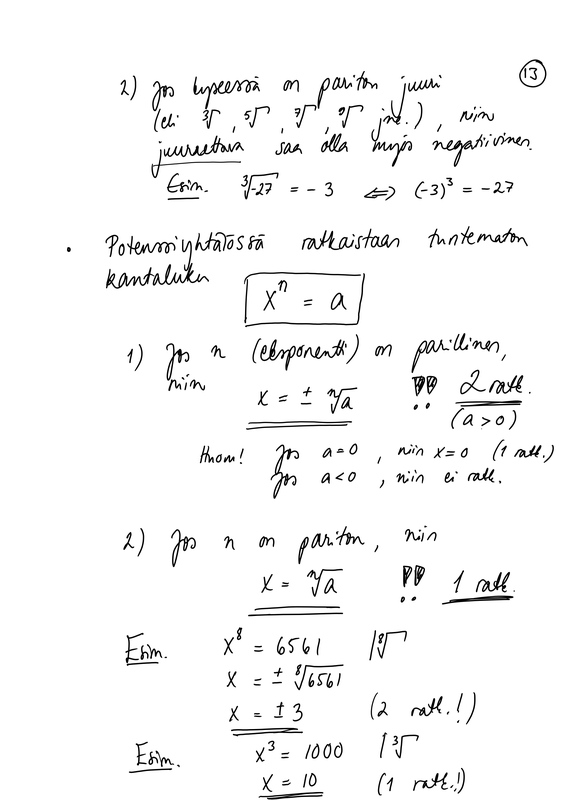 13
2) Jos kyseessä on pariton juuri
(eli ∛ , ⁵√ , ⁷√ , ⁹√ jne.) , niin
juurrettava saa olla myös negatiivinen.
Esim. ∛-27 = -3 ⟺ (-3)³ = -27
• Potenssiyhtälössä ratkaistaan tuntematon
kantaluku
xⁿ = a
1) Jos n (eksponentti) on parillinen,
niin
x = ± ⁿ√a !! 2 ratk.
(a > 0)
Huom! Jos a = 0 , niin x = 0 (1 ratk.)
Jos a < 0 , niin ei ratk.
2) Jos n on pariton , niin
x = ⁿ√a !! 1 ratk.
Esim. x⁸ = 6561 |⁸√
x = ± ⁸√6561
x = ± 3 (2 ratk.!)
Esim. x³ = 1000 |³√
x = 10 (1 ratk.!)